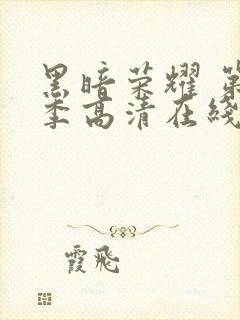 黑暗荣耀 第
季高清在线
霞飛